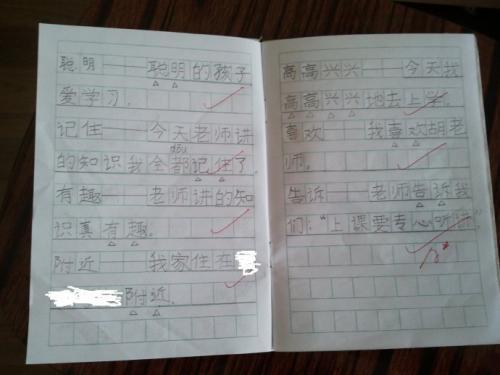 聪明——聪明的孩子
爱学习。
记住——今天老师讲
的知识我全都记住了
有趣——老师讲的知
识真有趣。
附近——我家住在
附近。
高高兴兴——今天我
高高兴兴地去上学。
喜欢——我喜欢胡老
师。
告诉——老师告诉我
们:“上课要专心听讲”